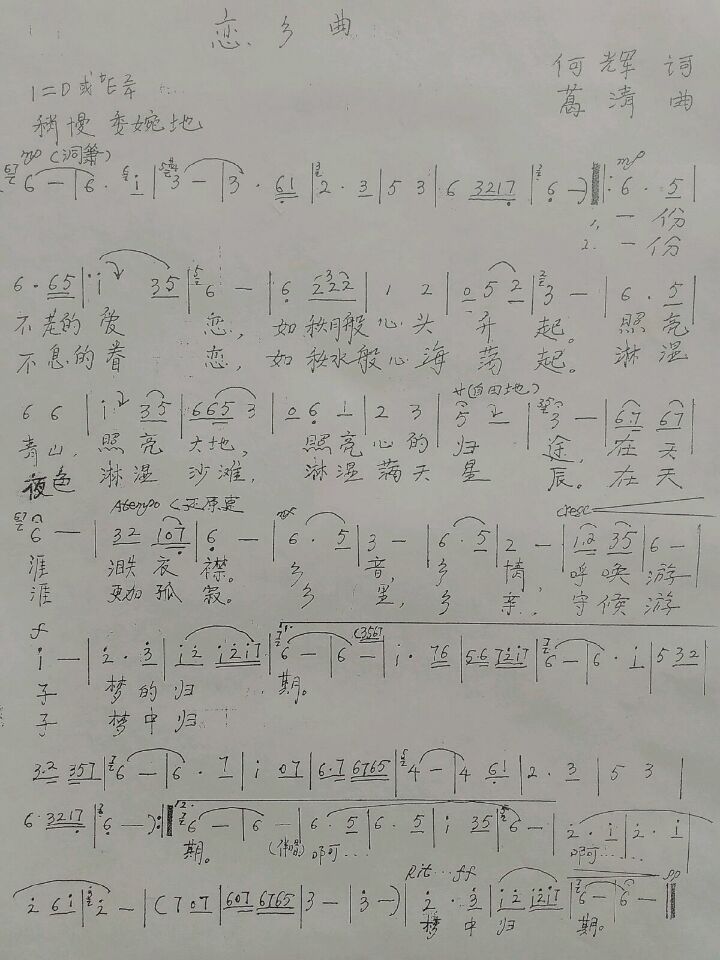 恋乡曲
何辉 词
1=D或♭E 2/4
葛清 曲
稍慢 委婉地
mp (洞箫)
6 — | 6 · i | 3 — | 3 · 6 1 | 2 · 3 | 5 3 | 6 3217 | 6 — ) ‖: 6 · 5 |
mp
1. 一 份
2. 一 份
6 · 65 | i 35 | 6 — | 6 2322 | 1 2 | 0 5 2 | 3 — | 6 · 5 |
不老的 爱 恋, 如 秋月般 心 头 升 起。 照 亮
不息的 眷 恋, 如 秋水般 心 海 荡 起。 淋 湿
廿(自由地)
6 6 | i 35 | 665 3 | 0 6 1 | 2 3 | 5 2 | 3 — | 67 67 |
青山, 照亮 大地, 照亮 心的 归 途, 在 天
夜色 淋湿 沙滩, 淋湿 满天 星 辰。 在 天
Atempo (还原速 mf cresc
6 — | 32 107 | 6 — | 6 · 5 | 3 — | 6 · 5 | 2 — | 12 35 | 6 — |
涯 泪失 夜 襟。 乡 音, 乡 情, 呼 唤 游
涯 更加 孤 寂。 乡 里, 乡 亲, 守 候 游
f
i — | 2 · 3 | i2 i2i7 | 6 — | 6 — (3567 | i · 76 | 5·6 72i7 | 6 — | 6 · i | 5 32 |
子 梦 的 归 期。
子 梦 中 归
3·2 357 | 6 — | 6 · 7 | i 07 | 6·7 6765 | 4 — | 4 61 | 2 · 3 | 5 3 |
6·3217 | 6 — ) :‖ 6 — | 6 — | 6 · 5 | 6 · 5 | i 35 | 6 — | 2 · i | 2 · i |
期。 (伴唱) 啊…… 啊……
Rit… ff pp
2 6i | 2 — | (7 07 | 607 6765 | 3 — | 3 — ) | 2 · 3 | i2 i2i7 | 6 — | 6 — ‖
梦 中 归 期。